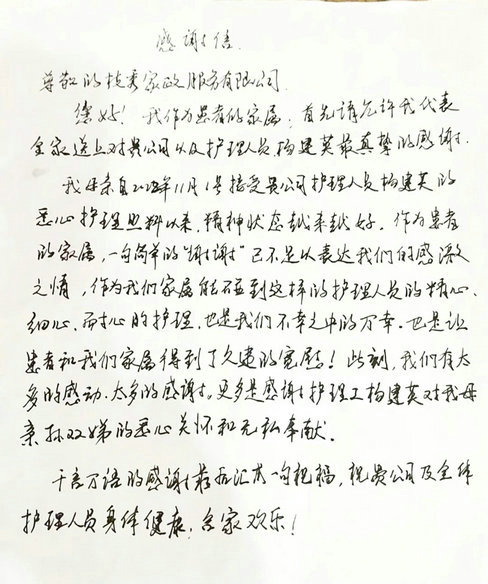 感谢信.
尊敬的枝秀家政服务有限公司.
您好！我作为患者的家属，首先请允许我代表
全家送上对贵公司以及护理人员 建英最真挚的感谢.
我母亲自 11月1号接受贵公司护理人员 建英的
悉心护理照料以来，精神状态越来越好. 作为患者
的家属，一句简单的"谢谢"已不足以表达我们的感激
之情，作为我们家属能不 到这样的护理人员的精心.
细心、耐心的护理，也是我们不幸之中的万幸. 也是让
患者和我们家属得到了久违的宽慰！此刻，我们有太
多的感动. 太多的感谢. 更多是感谢护理工 建英对我母
亲孙双娣的悉心关怀和无私奉献.
千言万语的感谢最后汇成一句祝福，祝贵公司及全体
护理人员身体健康，合家欢乐！